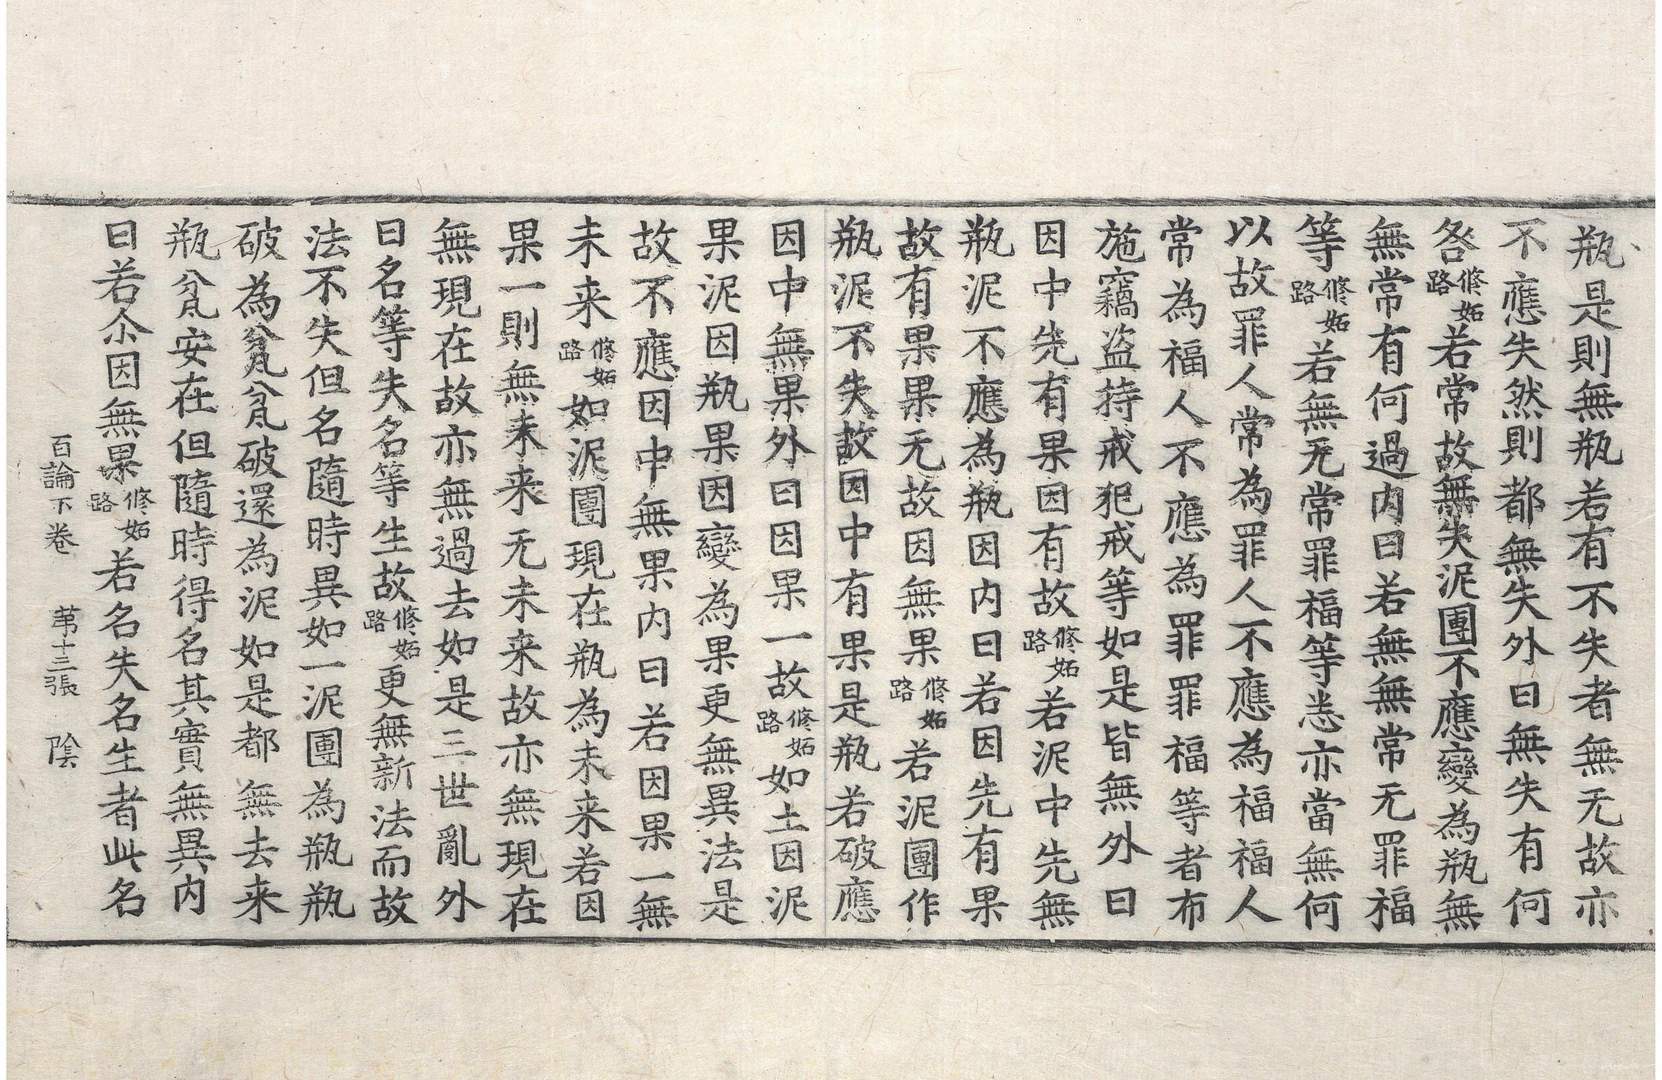 瓶是則無瓶若有不失者無无故亦
不應失然則都無失外曰無失有何
咎修妬路若常故無失泥團不應變為瓶無
無常有何過内曰若無無常无罪福
等修妬路若無无常罪福等悉亦當無何
以故罪人常為罪人不應為福福人
常為福人不應為罪罪福等者布
施竊盜持戒犯戒等如是皆無外曰
因中先有果因有故修妬路若泥中先無
瓶泥不應為瓶因内曰若因先有果
故有果果无故因無果修妬路若泥團作
瓶泥不失故因中有果是瓶若破應
因中無果外曰因果一故修妬路如土因泥
果泥因瓶果因變為果更無異法是
故不應因中無果内曰若因果一無
未来修妬路如泥團現在瓶為未来若因
果一則無未来无未来故亦無現在
無現在故亦無過去如是三世亂外
曰名等失名等生故修妬路更無新法而故
法不失但名隨時異如一泥團為瓶瓶
破為瓫瓫破還為泥如是都無去来
瓶瓫安在但隨時得名其實無異内
曰若尒因無果修妬路若名失名生者此名
百論下卷 苐十三張 陰